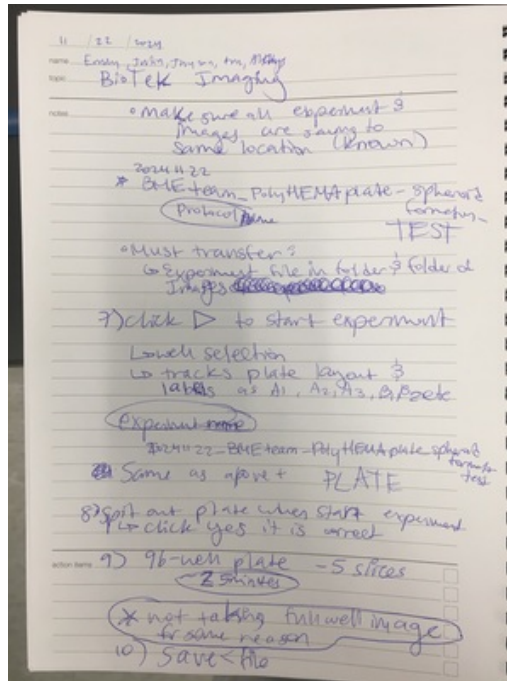 11 / 22 / 2024
name Emily,
topic BioTek Imaging
notes
• Make sure all experiment &
images are saving to
same location (known)
20241122
* BMEteam_PolyHEMAplate-spheroid
formation-
Protocol name
TEST
• Must transfer:
↳ Experiment file in folder & folder of
Images
7) click ▷ to start experiment
↳ well selection
↳ tracks plate layout &
labels as A1, A2, A3, B1, B2 etc
experiment name
20241122_BMEteam_PolyHEMAplate_spheroid
formation
test
Same as above + PLATE
8) Spit out plate when start experiment
↳ click yes it is correct
action items 9) 96-well plate - 5 slices
25 minutes
* not taking full well image
for some reason
10) Save < file